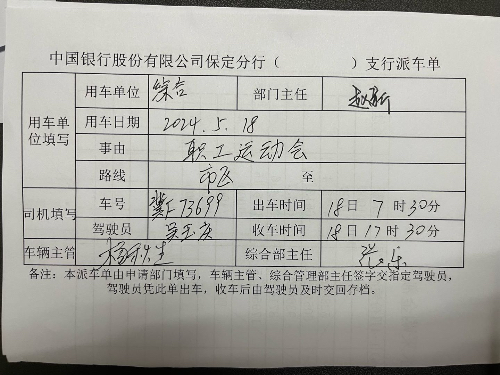 中国银行股份有限公司保定分行（ ）支行派车单
用车单位填写 用车单位 综合 部门主任
用车日期 2024.5.18
事由 职工运动会
路线 市区 至
司机填写 车号 冀F73699 出车时间 18日 7时30分
驾驶员 收车时间 18日17时30分
车辆主管 综合部主任
备注：本派车单由申请部门填写，车辆主管、综合管理部主任签字交指定驾驶员，
驾驶员凭此单出车，收车后由驾驶员及时交回存档。